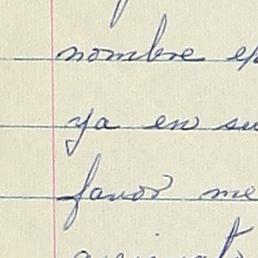 nombre
ya en su
favor me